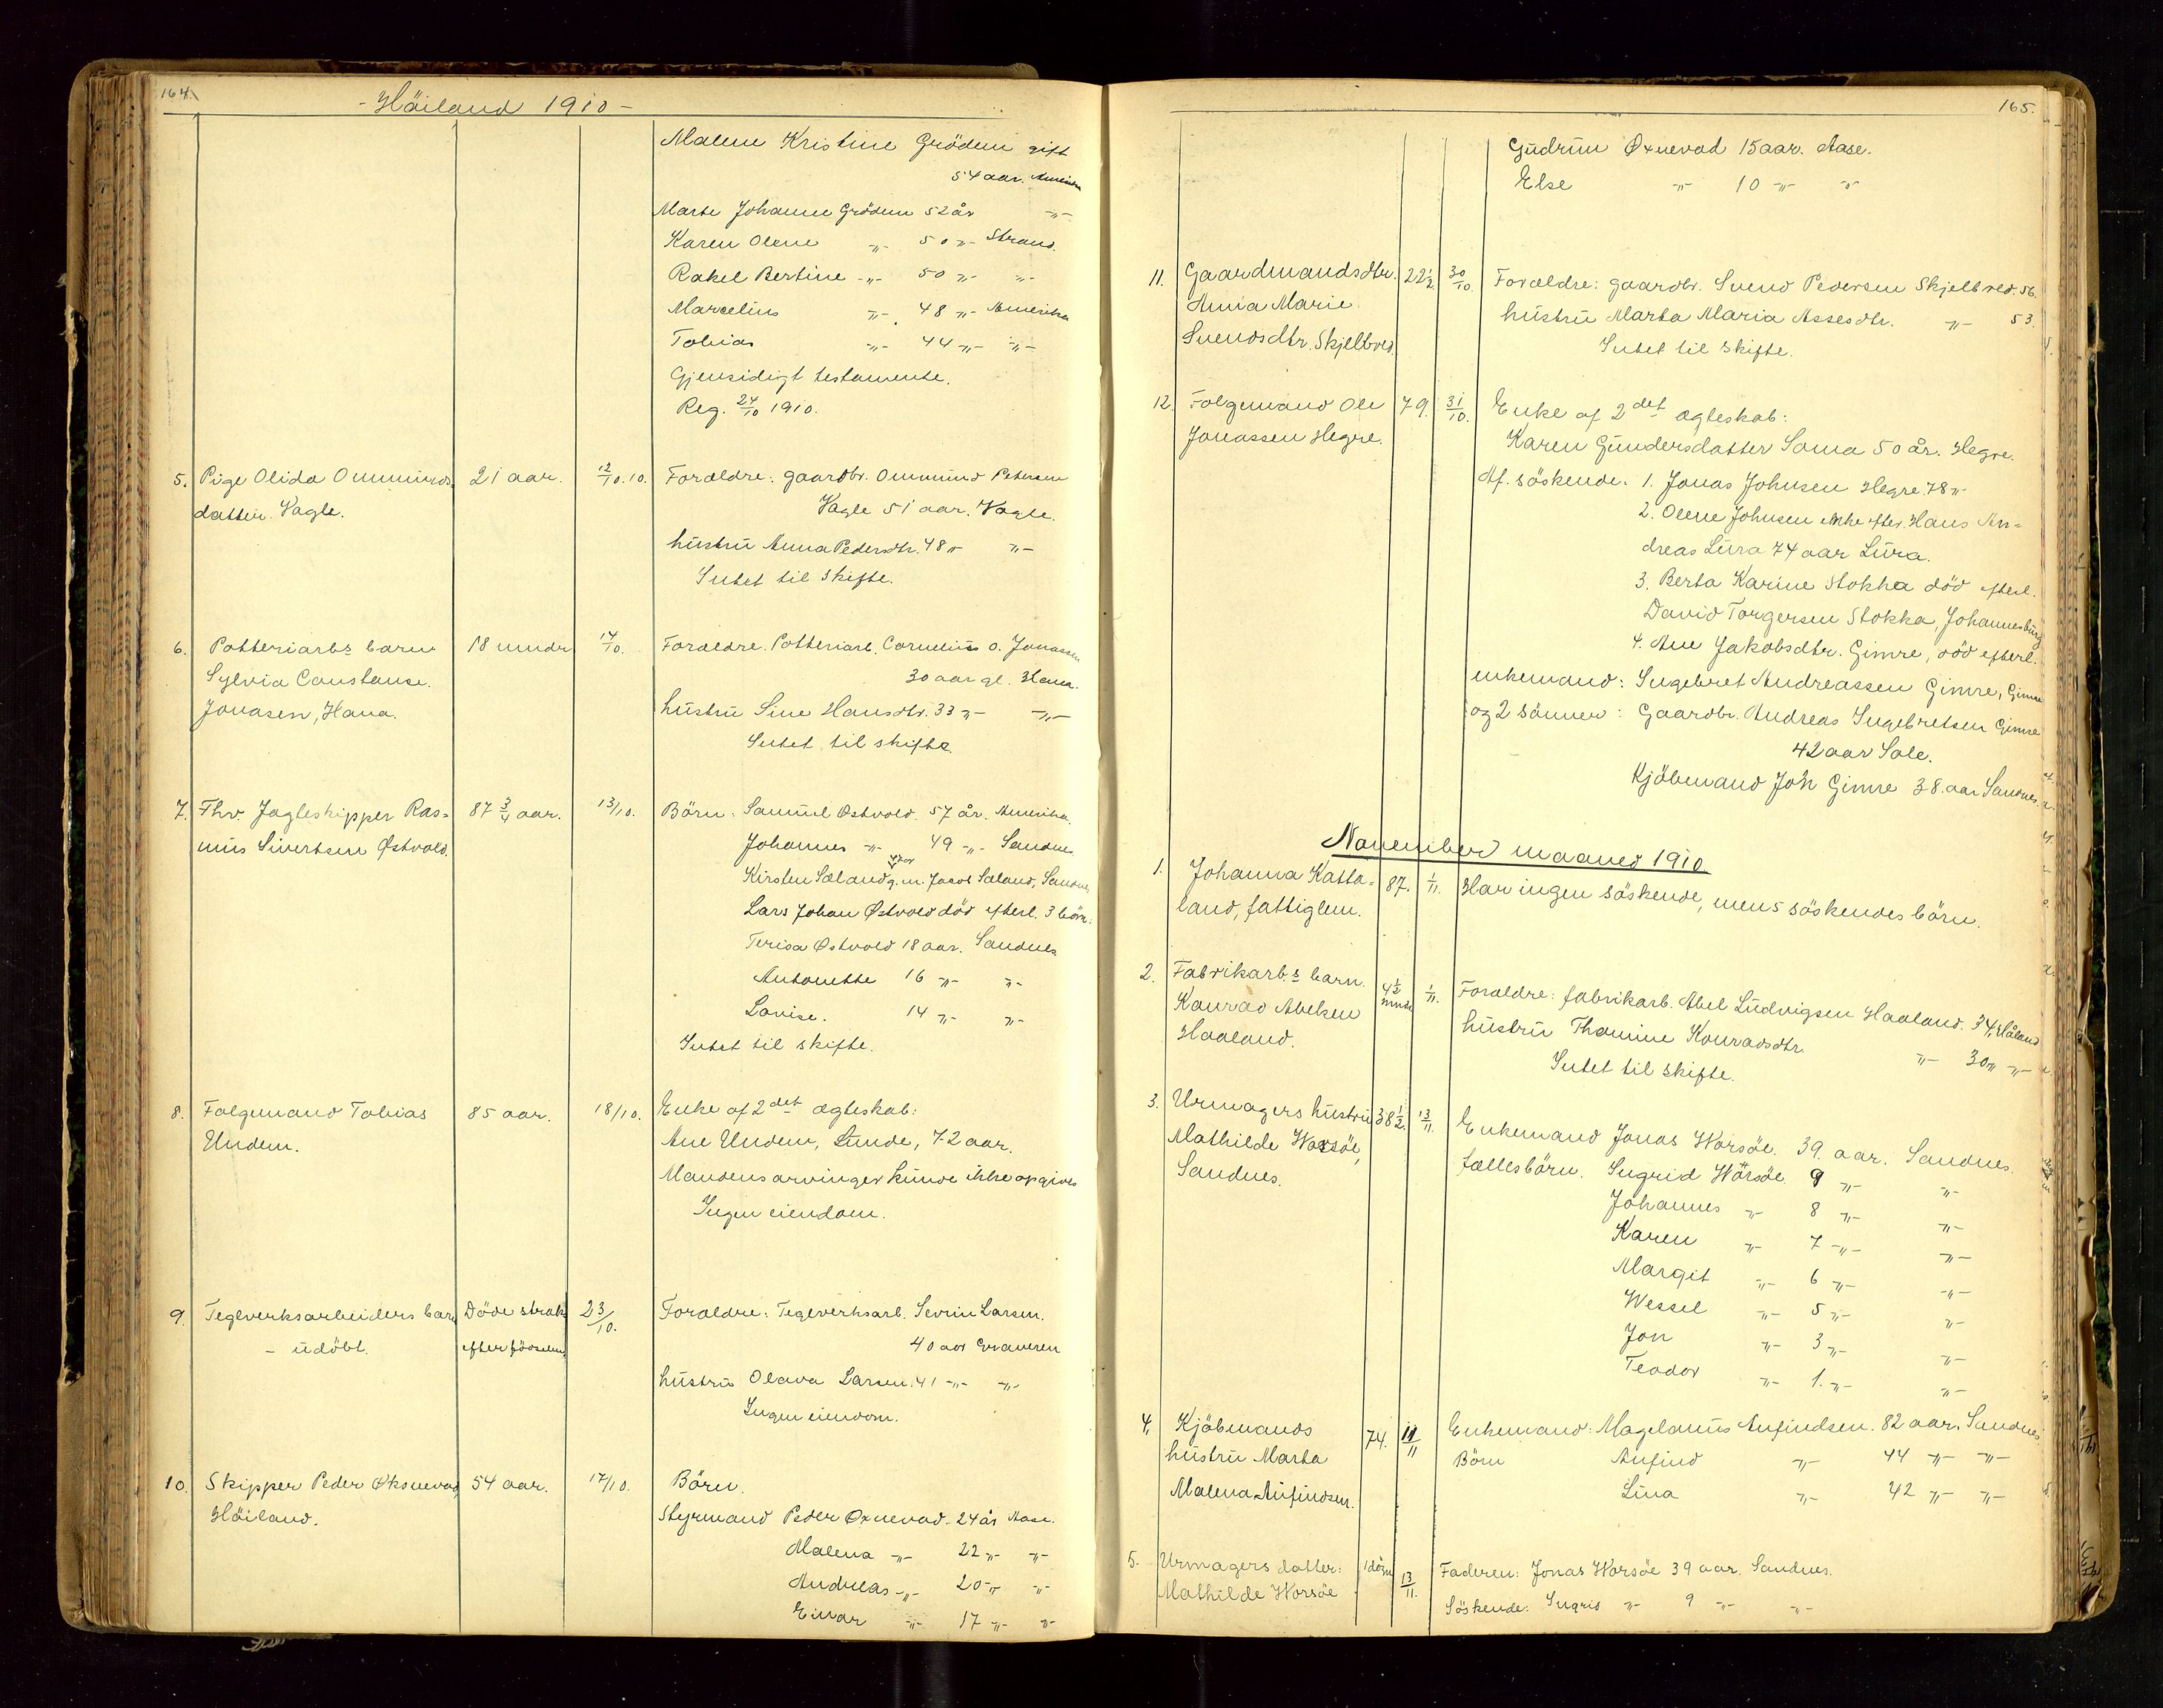 164.
- Häiland 1910 -
Malene Kristine Grödem gift
54 aar. Amerika
Marte Johanne Grödem 52 år -"-
Karen Olene -"- 50 -"- Strand.
Rakel Bertine -"- 50 -"- -"-
Marcelius -"- 48 -"- Amerika
Tobias -"- 44 -"- -"-
Gjensidigt testamente.
Reg. 24/10 1910.
5. Pige Olida Ommunds 21 aar. 12/10.10. Forældre: gaardbr. Ommund Petersen
datter Vagle. Vagle 51 aar. Vagle.
hustru Anna Pedersdtr. 48 -"- -"-
Intet til skifte.
6. Potteriarbs barn 18 mndr 14/10. Forældre. Potteriarb. Cornelius O. Jonassen
Sylvia Constanse. 30 aar gl. Hana.
Jonasen, Hana. hustru Sine Hansdtr. 33 -"- -"-
Intet til skifte.
7. Fhv. Jagteskipper Ras= 87 3/4 aar. 13/10. Börn: Samuel Østvold. 57 år. Amerika.
mus Sivertsen Østvold. Johannes -"- 49 -"- Sandnes
Kirsten Sæland g.m. Jacob Sæland, Sandnes
Lars Johan Østvold död efterl. 3 börn:
Terisa Østvold 18 aar. Sandnes
Antonette 16 -"- -"-
Lovise. 14 -"- -"-
Intet til skifte.
8. Folgemand Tobias 85 aar. 18/10. Enke af 2det ægteskab:
Undem. Ane Undem, Lunde, 72 aar.
Mandens arvinger kunde ikke opgives
Ingen eiendom.
9. Teglverksarbeiders barn Döde straks 23/10. Forældre: Teglverksarb. Sevrin Larsen.
- udöbt. efter födselen. 40 aar Graveren
hustru Olava Larsen. 41 -"- -"-
Ingen eiendom.
10. Skipper Peder Øksnevad, 54 aar. 17/10. Börn.
Häiland. Styrmand Peder Oxnevad. 24 år Aase.
Malena -"- 22 -"- -"-
Andreas -"- 20 -"- -"-
Einar -"- 17 -"- -"-
165.
Gudrun Øxnevad 15 aar. Aase.
Else -"- 10 -"- -"-
11. Gaardmandsdtr. 22 1/2 30/10. Forældre: gaardbr. Svend Pedersen Skjelbred. 56.
Anna Marie hustru Marta Maria Assesdtr. -"- 53.
Svendsdtr. Skjelbred. Intet til skifte.
12. Folgemand Ole 79. 31/10. Enke af 2det ægteskab:
Jonassen Hegre. Karen Gundersdatter Soma 50 år. Hegre.
Af. söskende. 1. Jonas Johnsen Hegre 78 -"-
2. Olene Johnsen enke efter Hans An=
dreas Lura 74 aar Lura.
3. Berta Karine Stokka död efterl.
David Torgersen Stokka, Johannesburg
4. Ane Jakobsdtr. Gimre, död efterl.
enkemand: Ingebret Andreassen Gimre, Gimre
og 2 sönner: Gaardbr. Andreas Ingebretsen Gimre
42 aar Sole.
Kjöbmand Joh Gimre 38. aar Sandnes.
November maaned 1910.
1. Johanna Katta= 87. 1/11. Har ingen söskende, mens söskendes börn.
land, fattiglem.
2. Fabrikarb.s barn. 4 1/2 mndr 1/11. Forældre: fabrikarb. Abel Ludvigsen Haaland. 34, Håland
Konrad Abelsen hustru Thomine Konradsdtr. -"- 30 -"- -"-
Haaland. Intet til skifte.
3. Urmagers hustru 38 1/2. 13/11. Enkemand Jonas Worsöe. 39 aar. Sandnes.
Mathilde Worsöe, fællesbörn. Ingrid Worsöe 9 -"- -"-
Sandnes. Johannes -"- 8 -"- -"-
Karen -"- 7 -"- -"-
Margit -"- 6 -"- -"-
Wessel -"- 5 -"- -"-
Jon -"- 3 -"- -"-
Teodor -"- 1. -"- -"-
4. Kjöbmands 74. 11/11 Enkemand: Magelanus Anfindsen. 82 aar. Sandnes
hustru Marta Börn Anfind -"- 44 -"- -"-
Malena Anfindsen. Lina -"- 42 -"- -"-
5. Urmagers datter: 1 dögn 13/11. Faderen: Jonas Worsöe 39 aar. Sandnes.
Mathilde Worsöe Söskende: Ingrid -"- 9 -"- -"-